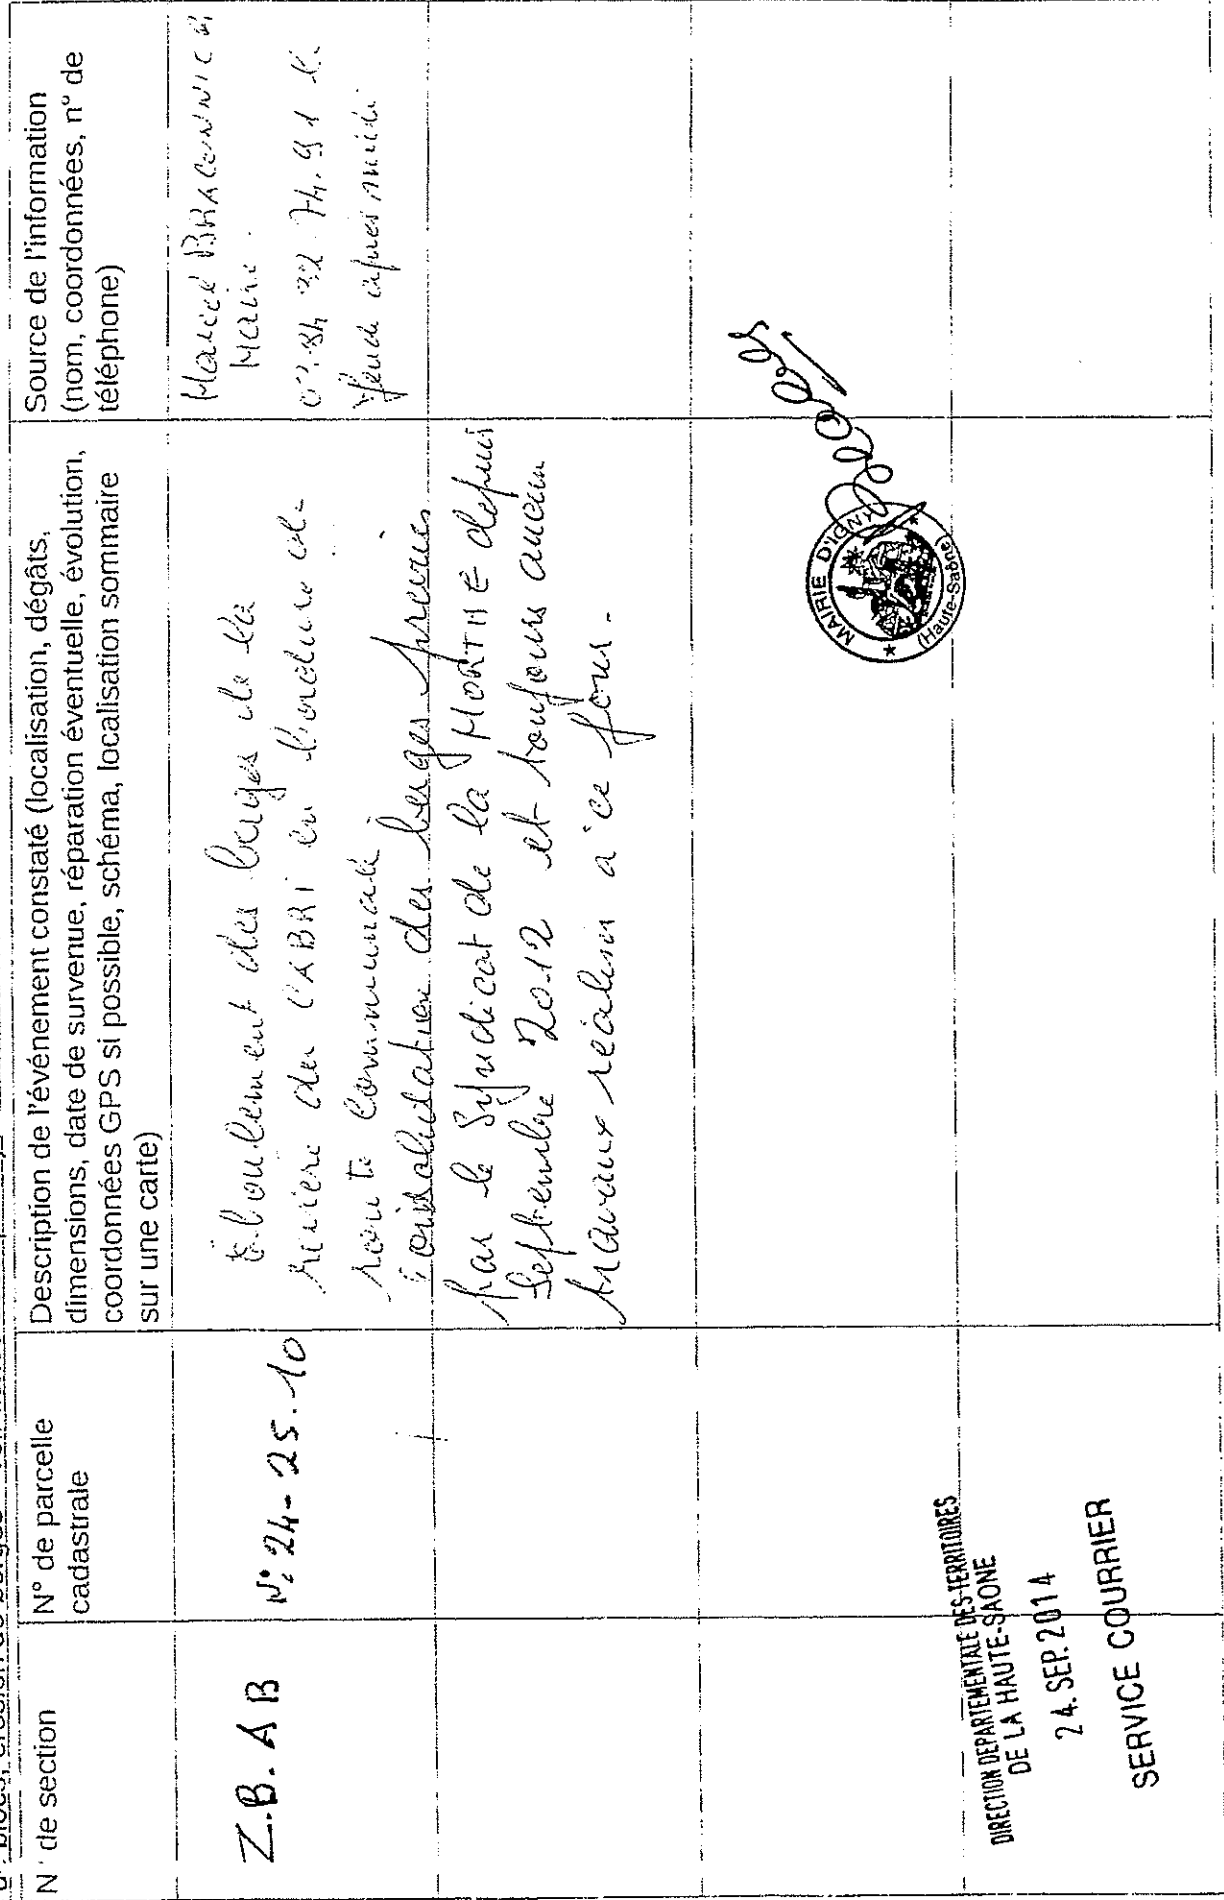 blocs, érosion de berges
N° de section
N° de parcelle
cadastrale
Description de l'événement constaté (localisation, dégâts,
dimensions, date de survenue, réparation éventuelle, évolution,
coordonnées GPS si possible, schéma, localisation sommaire
sur une carte)
Source de l'information
(nom, coordonnées, n° de
téléphone)
Z.B. AB
N° 24-25-10
Eboulement des berges de la
rivière de CABRI en bordure de
route communale.
Consolidation des berges prévues
par le Syndicat de la MORTHE depuis
Septembre 2012 et toujours aucun
travaux réalisés à ce jour.
Marcel
Maire.
74.91 le
jeudi après midi
MAIRIE D'IGNY
(Haute-Saône)
DIRECTION DEPARTEMENTALE DES TERRITOIRES
DE LA HAUTE-SAONE
24. SEP. 2014
SERVICE COURRIER